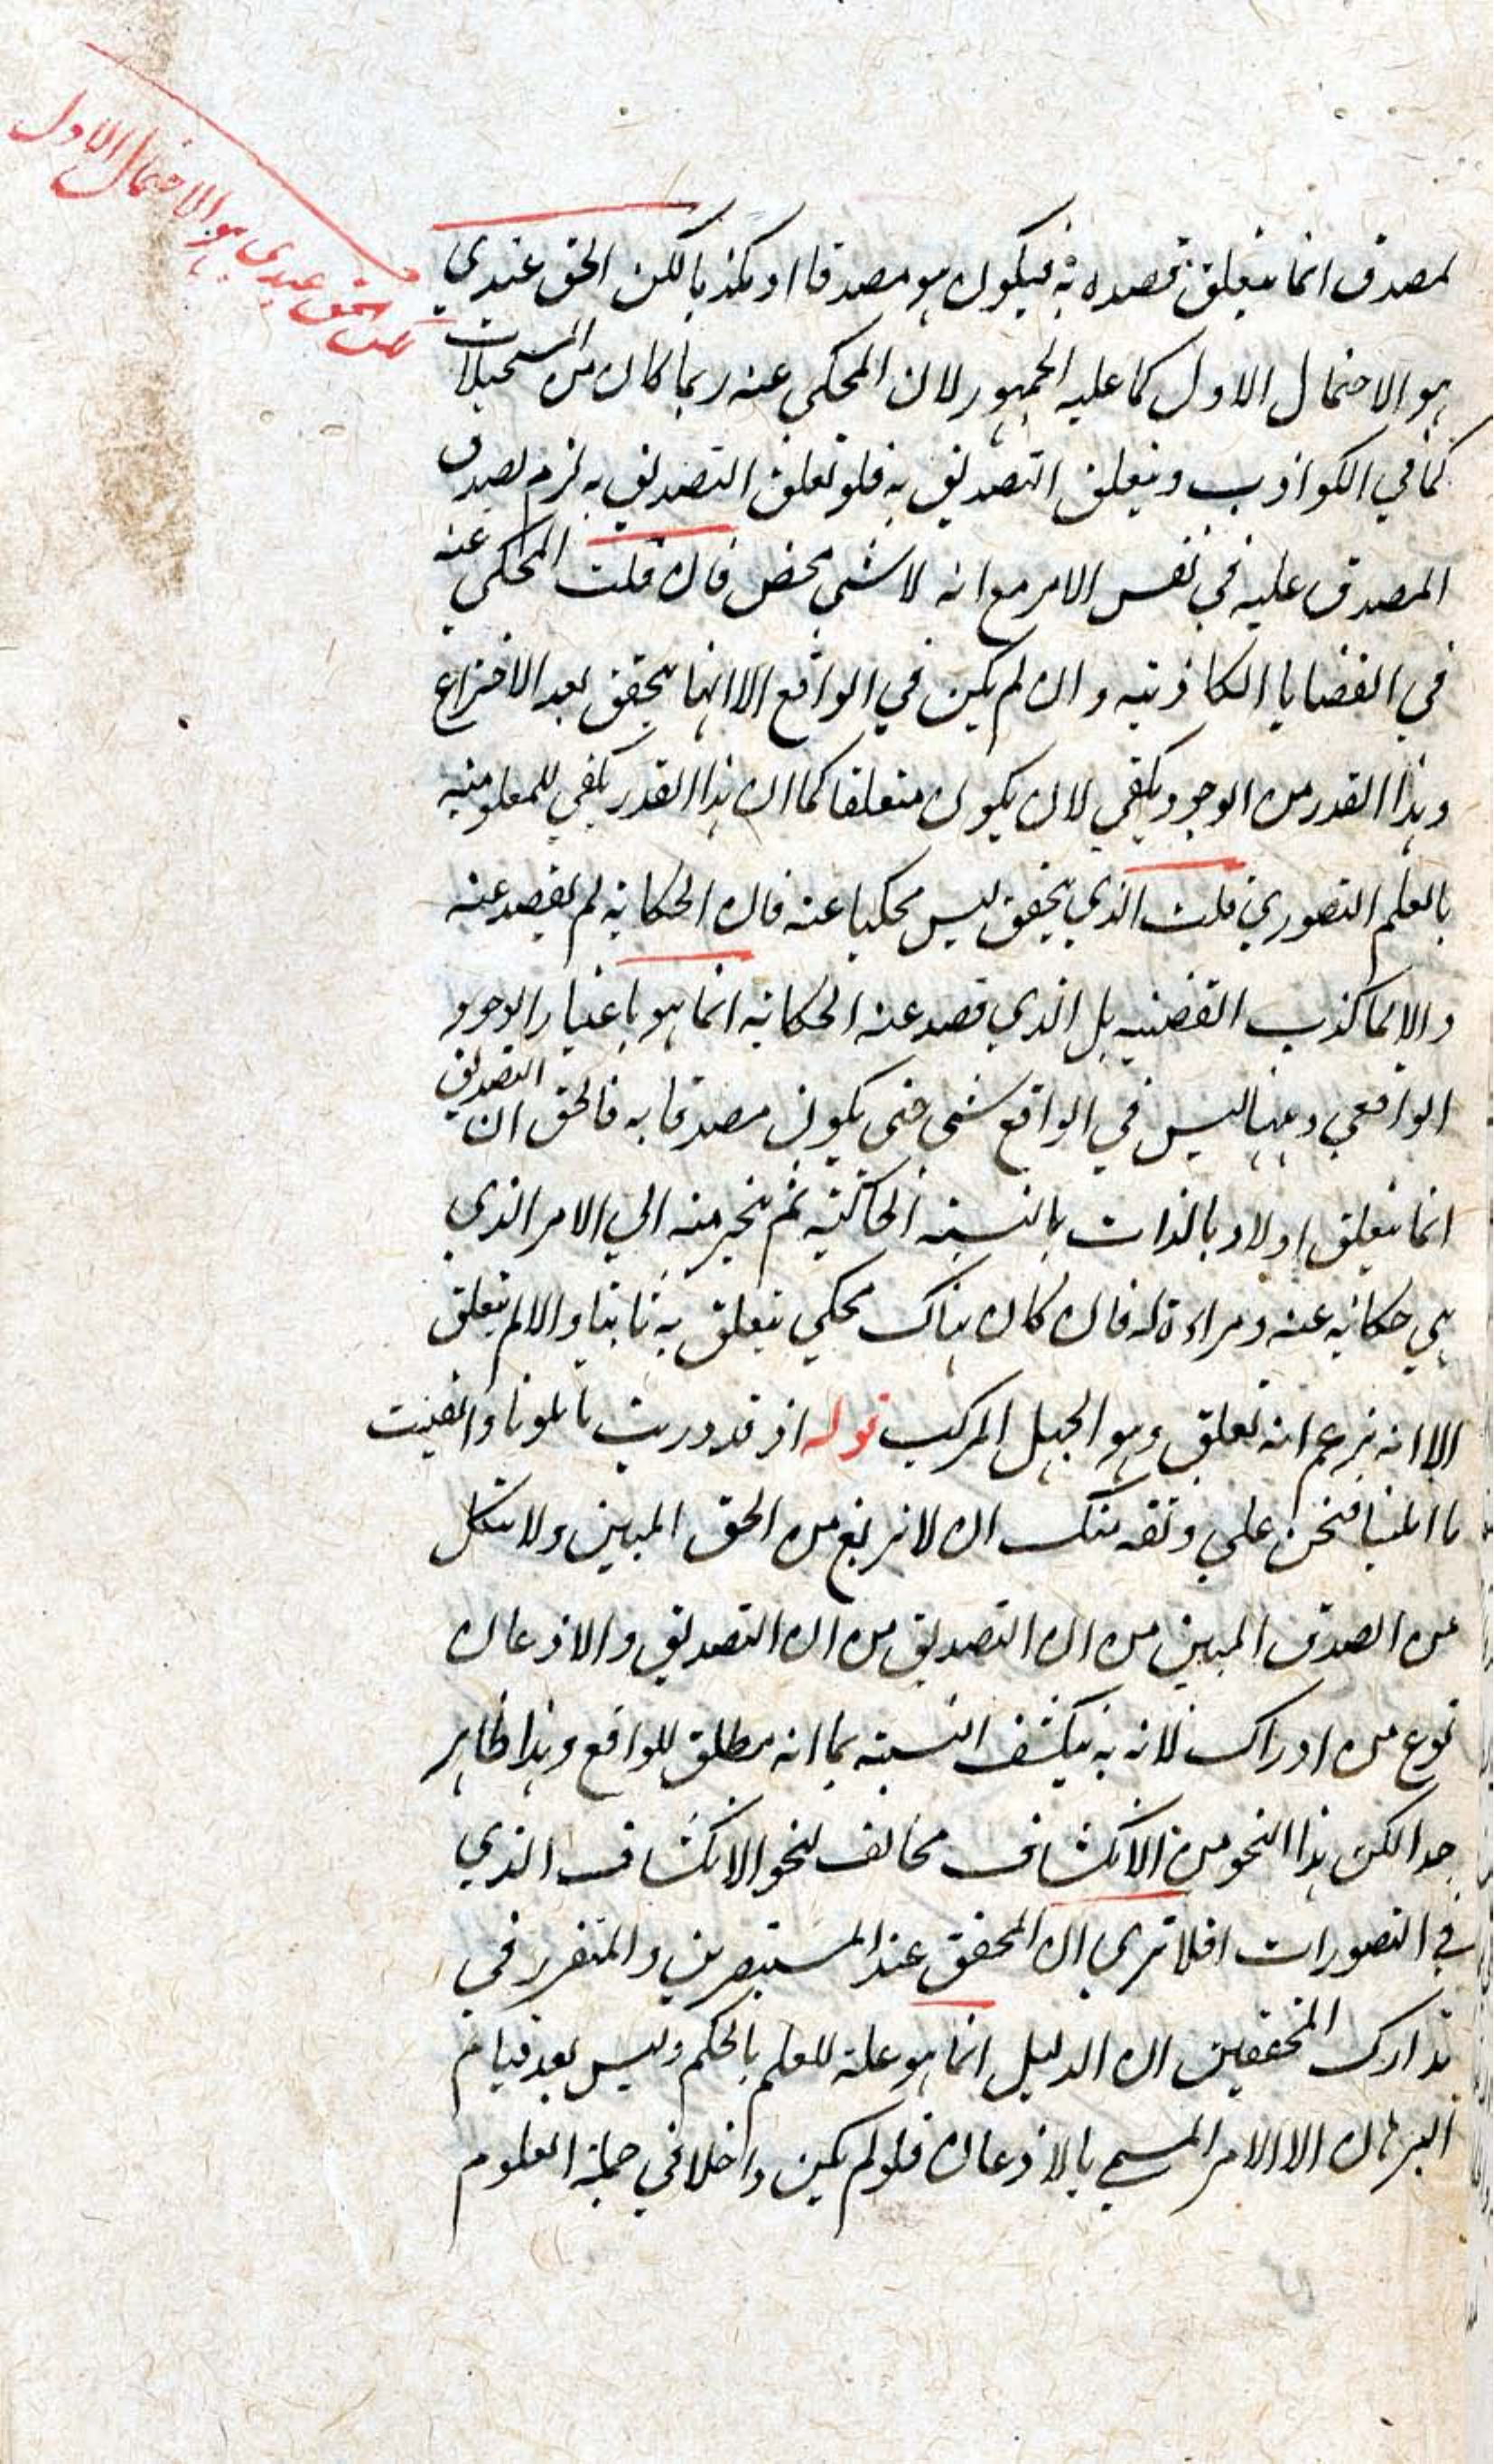 لمصدق انما يتعلق قصده به فيكون هو مصدقا او مكذبا لكن الحق عندي
هو الاحتمال الاول كما عليه الجمهور لان المحكي عنه ربما كان من المستحيلات
كما في الكواذب ويتعلق التصديق به فلو تعلق التصديق به لزم تصدق
المصدق عليه في نفس الامر مع انه لا شي محض فان قلت المحكي عنه
في القضايا الكاذبة وان لم يكن في الواقع الا انها يتحقق بعد الاختراع
وهذا القدر من الوجود يكفي لان يكون متعلقا كما ان هذا القدر يكفي للمعلومية
بالعلم التصوري قلت الذي يتحقق ليس محكيا عنه فان الحكاية لم يقصد عنه
والا لما كذب القضية بل الذي قصد عنه الحكاية انما هو باعتبار الوجود
الواقعي وههنا ليس في الواقع شي حتى يكون مصدقا به فالحق ان التصديق
انما يتعلق اولا وبالذات بالنسبة الحاكية ثم ينجر منه الي الامر الذي
هي حكاية عنه ومراءة له فان كان هناك محكي يتعلق به ثانيا والا لم يتعلق
الا انه يزعم انه تعلق وهو الجهل المركب قوله اذ قد دريت ما تلونا واتقنت
ما املينا فنحن علي وثقه منك ان لا نزيغ من الحق المبين ولا تنكل
من الصدق المبين من ان التصديق من ان التصديق والاذعان
نوع من ادراك لانه به ينكشف النسبة بما انه مطلق للواقع وهذا ظاهر
جدا لكن هذا النحو من الانكشاف مخالف لنحو الانكشاف الذي
في التصورات افلا تري ان المحقق عند المستبصرين والمتقرر في
تدارك المحققين ان الدليل انما هو علة للعلم بالحكم وليس بعد قيام
البرهان الا الامر المسمي بالاذعان فلو لم يكن داخلا في جملة العلوم
لكن الحق عندي هو الاحتمال الاول